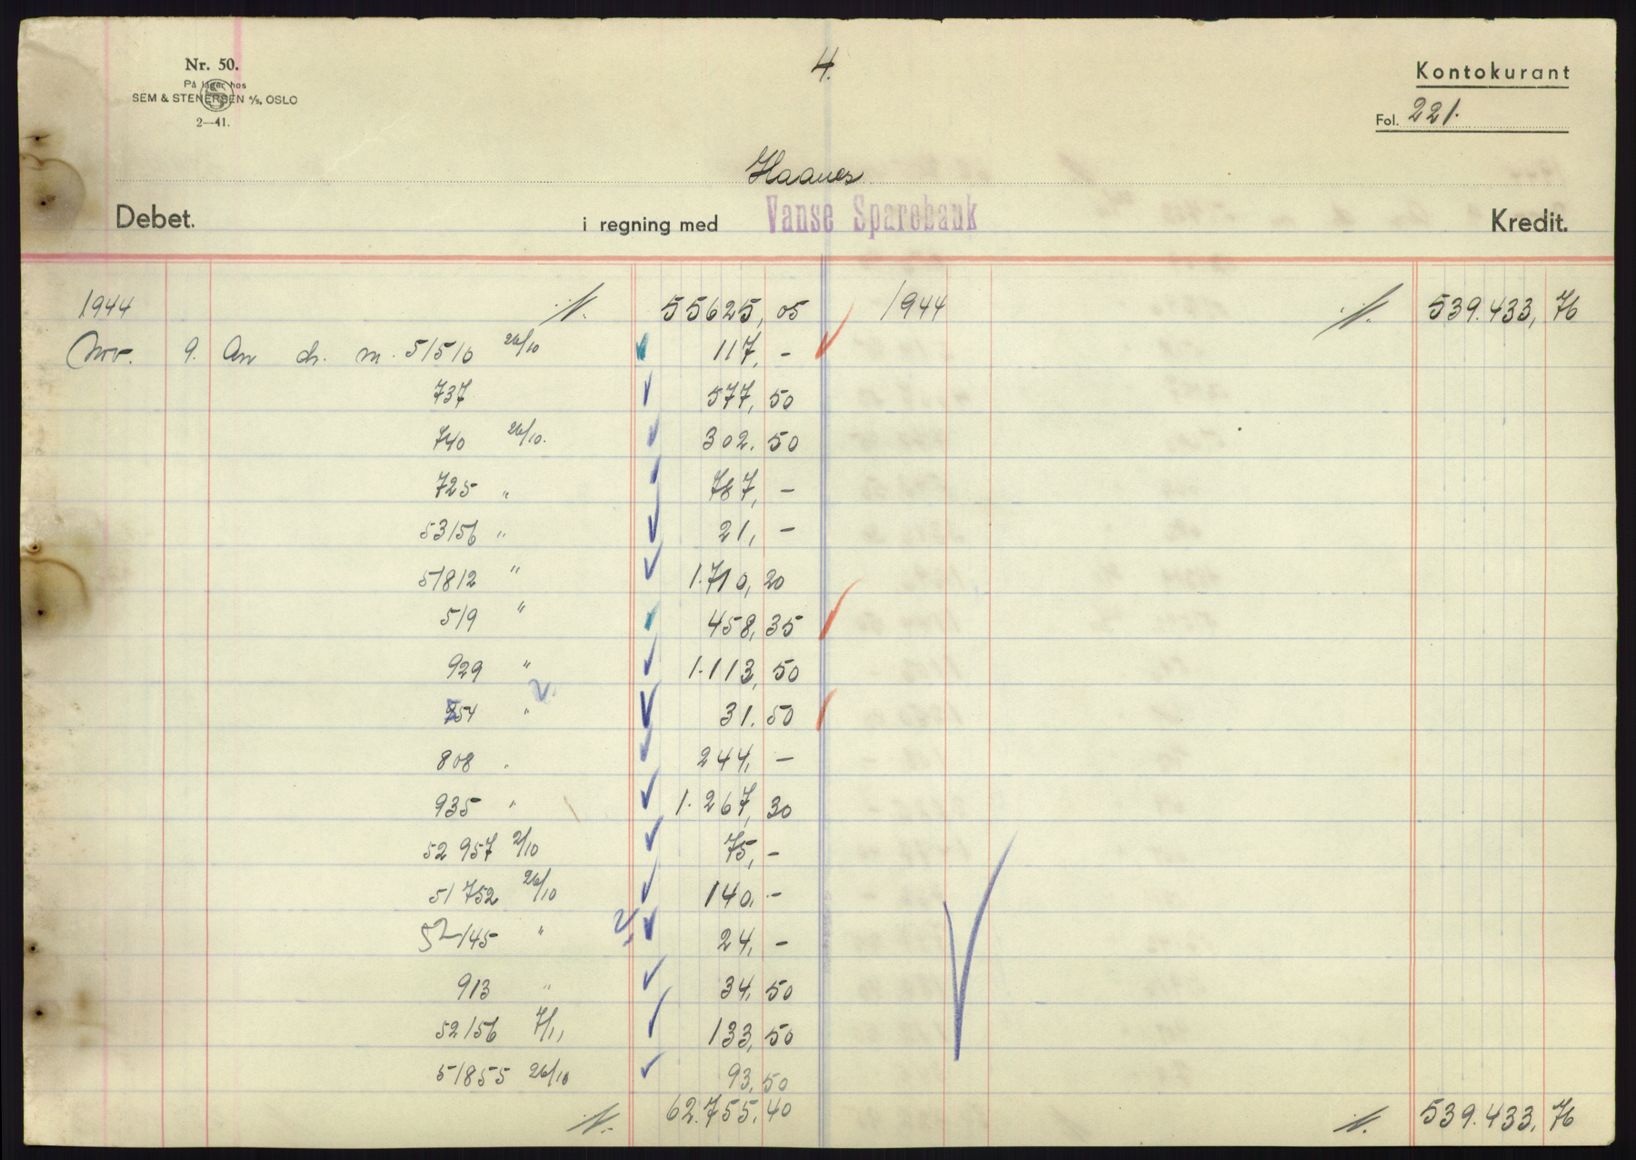 Nr. 50.
På lager hos
SEM & STENERSEN A/S, OSLO
2—41.
4.
Kontokurant
Fol. 221.
Haanes
Debet. i regning med Vanse Sparebank Kredit.
1944 55625,05 1944 539.433,76
Nov. 9. An ch. m. 51510 26/10 117,-
737 577,50
740 26/10. 302.50
725 " 787,-
53156 " 21,-
51812 " 1.710,20
519 " 458,35
929 " 1.113,50
54 " 31.50
808 . 244,-
935 " 1.267,30
52957 2/10 75,-
51752 26/10 140.-
52145 " 24,-
913 " 34,50
52156 7/11 133,50
51855 26/10 93,50
62.755,40 539.433,76